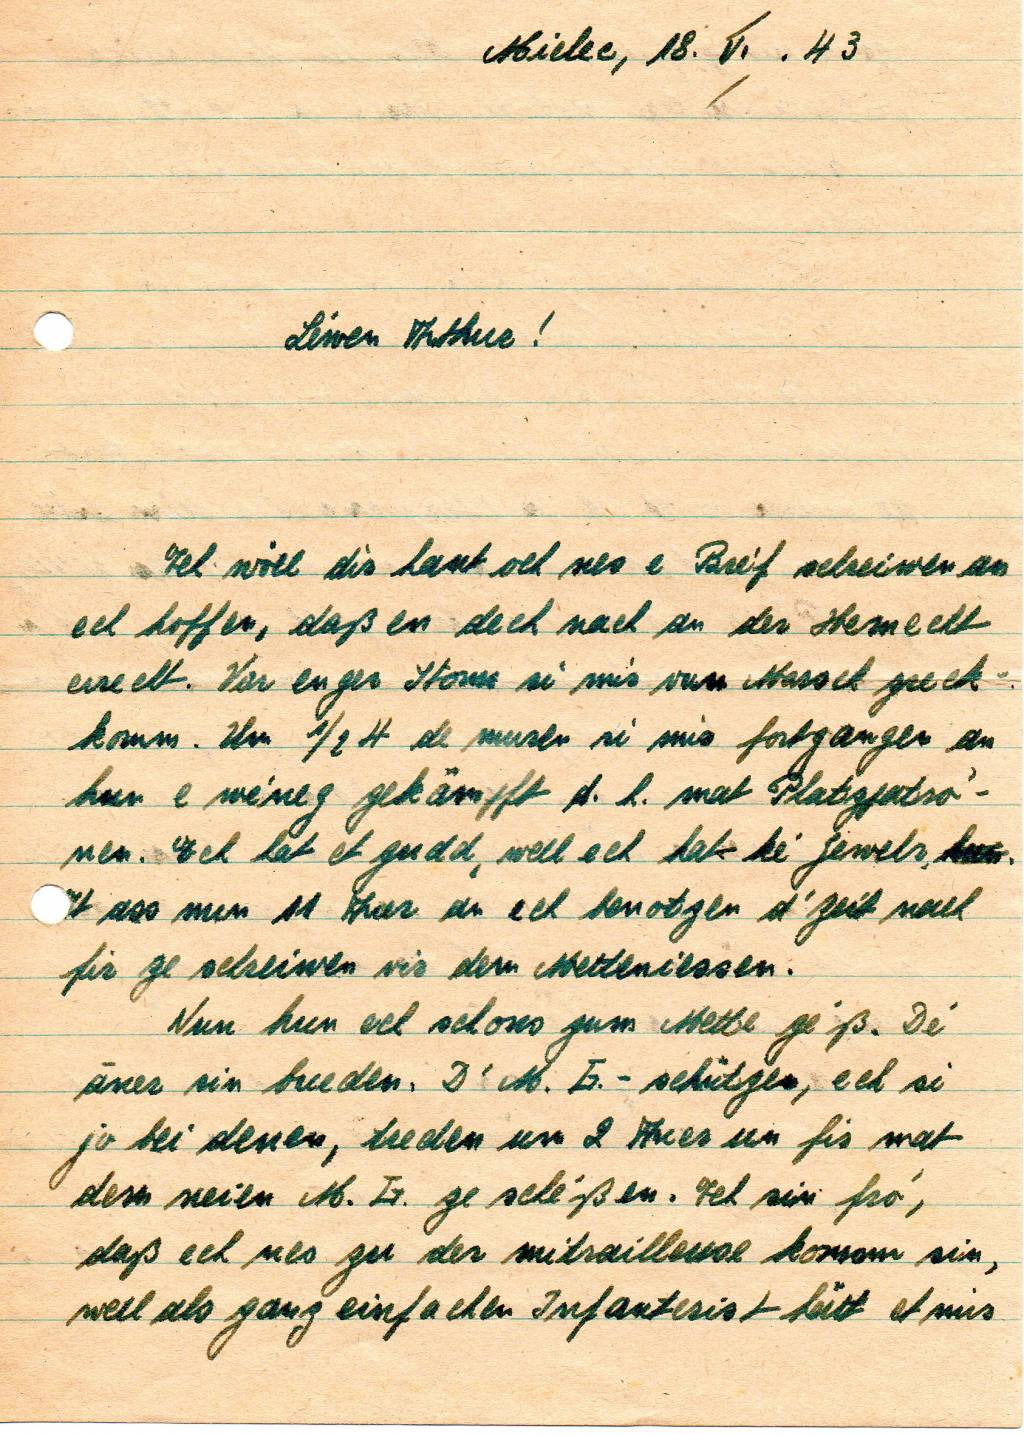 Mielec, 18. VI. . 43
Léiwen Arthur!
Ech wëll dir haut och nes e Bréif schreiwen an
ech hoffen, daß en dech nach an der Hemecht
erreecht. Var enger Stonn si mir vum Marsch zreck-
komm. Um 1/2 4 de muren si mir fortgangen an
hun e wéneg gekämpft d. h. mat Platzpatró-
nen. Ech hat et gudd, well ech hat ké Gewehr.
Et ass nun 11 Auer an ech benotzen d'Zeit nach
fir ze schreiwen vir dem Metteniessen.
Nun hun ech schons zum Mette géß. Déi
äner sin bueden. D' M. G. - schützen, ech si
jo bei denen, trieden um 2 Auer un fir mat
dem neien M. G. ze schéißen. Ech sin fró,
daß ech nes zu der mitrailleuse komm sin,
well als ganz einfachen Infanterist hätt et mir